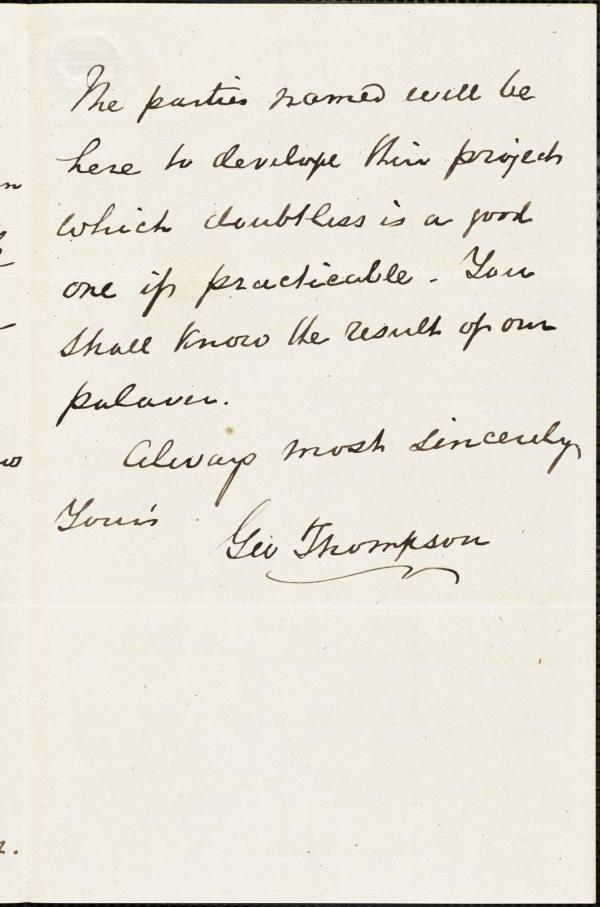 The parties named will be
here to develope this project
which doubtless is a good
one if practicable. You
shall know the result of our
palaver.
Always most sincerely
Yours
Geo Thompson